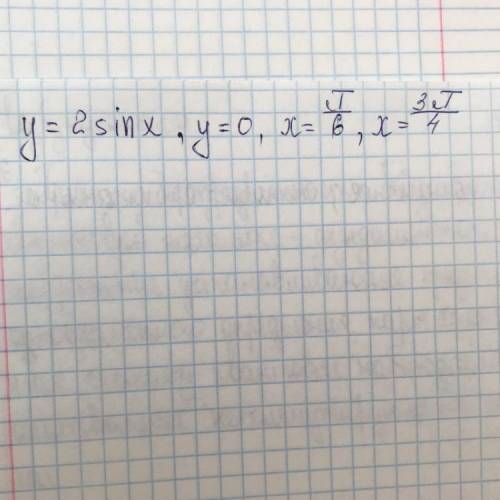 y = 2 sin x, y = 0, x = π/6, x = 3π/4